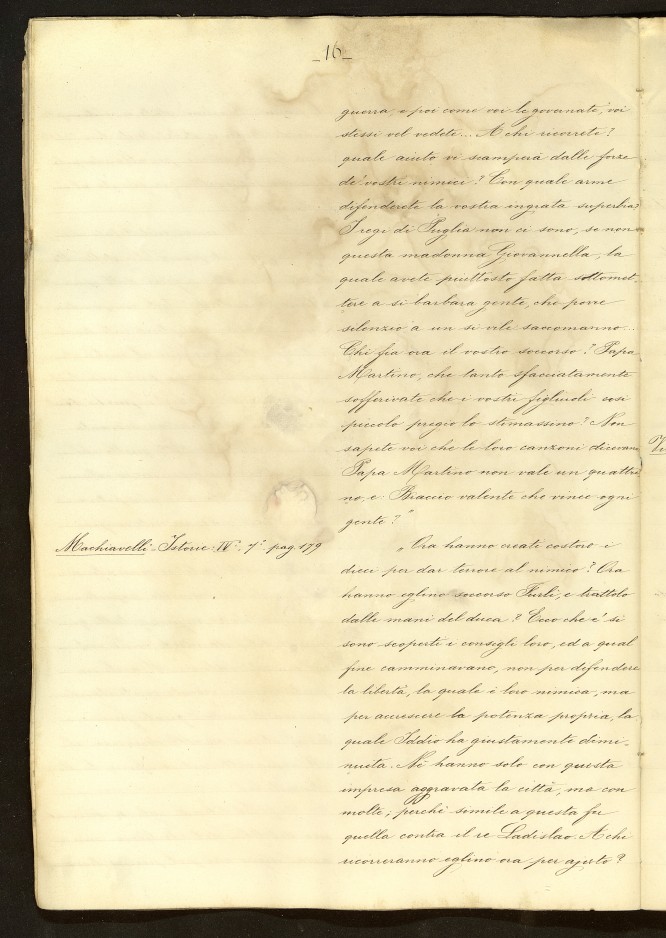 _16_
guerra, e poi come voi le governate, voi
stessi vel vedete... A chi ricorrete?
quale aiuto vi scamperà dalle forze
de' vostri nimici? Con quale arme
difenderete la vostra ingrata superbia?
I regi di Puglia non ci sono, se non
questa madonna Giovannella, la
quale avete piuttosto fatta sottomet-
tere a si barbara gente, che porre
silenzio a un si vile saccomanno...
Chi fia ora il vostro soccorso? Papa
Martino, che tanto sfacciatamente
sofferivate che i vostri figliuoli così
piccolo pregio lo stimassino? Non
sapete voi che le loro canzoni dicevano
Papa Martino non vale un quattri-
no, e: Braccio valente che vince ogni
gente?"
Machiavelli - Istorie IV. 7. pag. 179
"Ora hanno creati costoro i
dieci per dar terrore al nimico? Ora
hanno eglino soccorso Furlì, e trattolo
dalle mani del duca? Ecco che e' si
sono scoperti i consigli loro, ed a qual
fine camminavano, non per difendere
la libertà, la quale è loro nimica, ma
per accrescere la potenza propria, la
quale Iddio ha giustamente dimi-
nuita. Nè hanno solo con questa
impresa aggravata la città, ma con
molte; perchè simile a questa fu
quella contra il re Ladislao. A chi
ricorreranno eglino ora per ajuto?